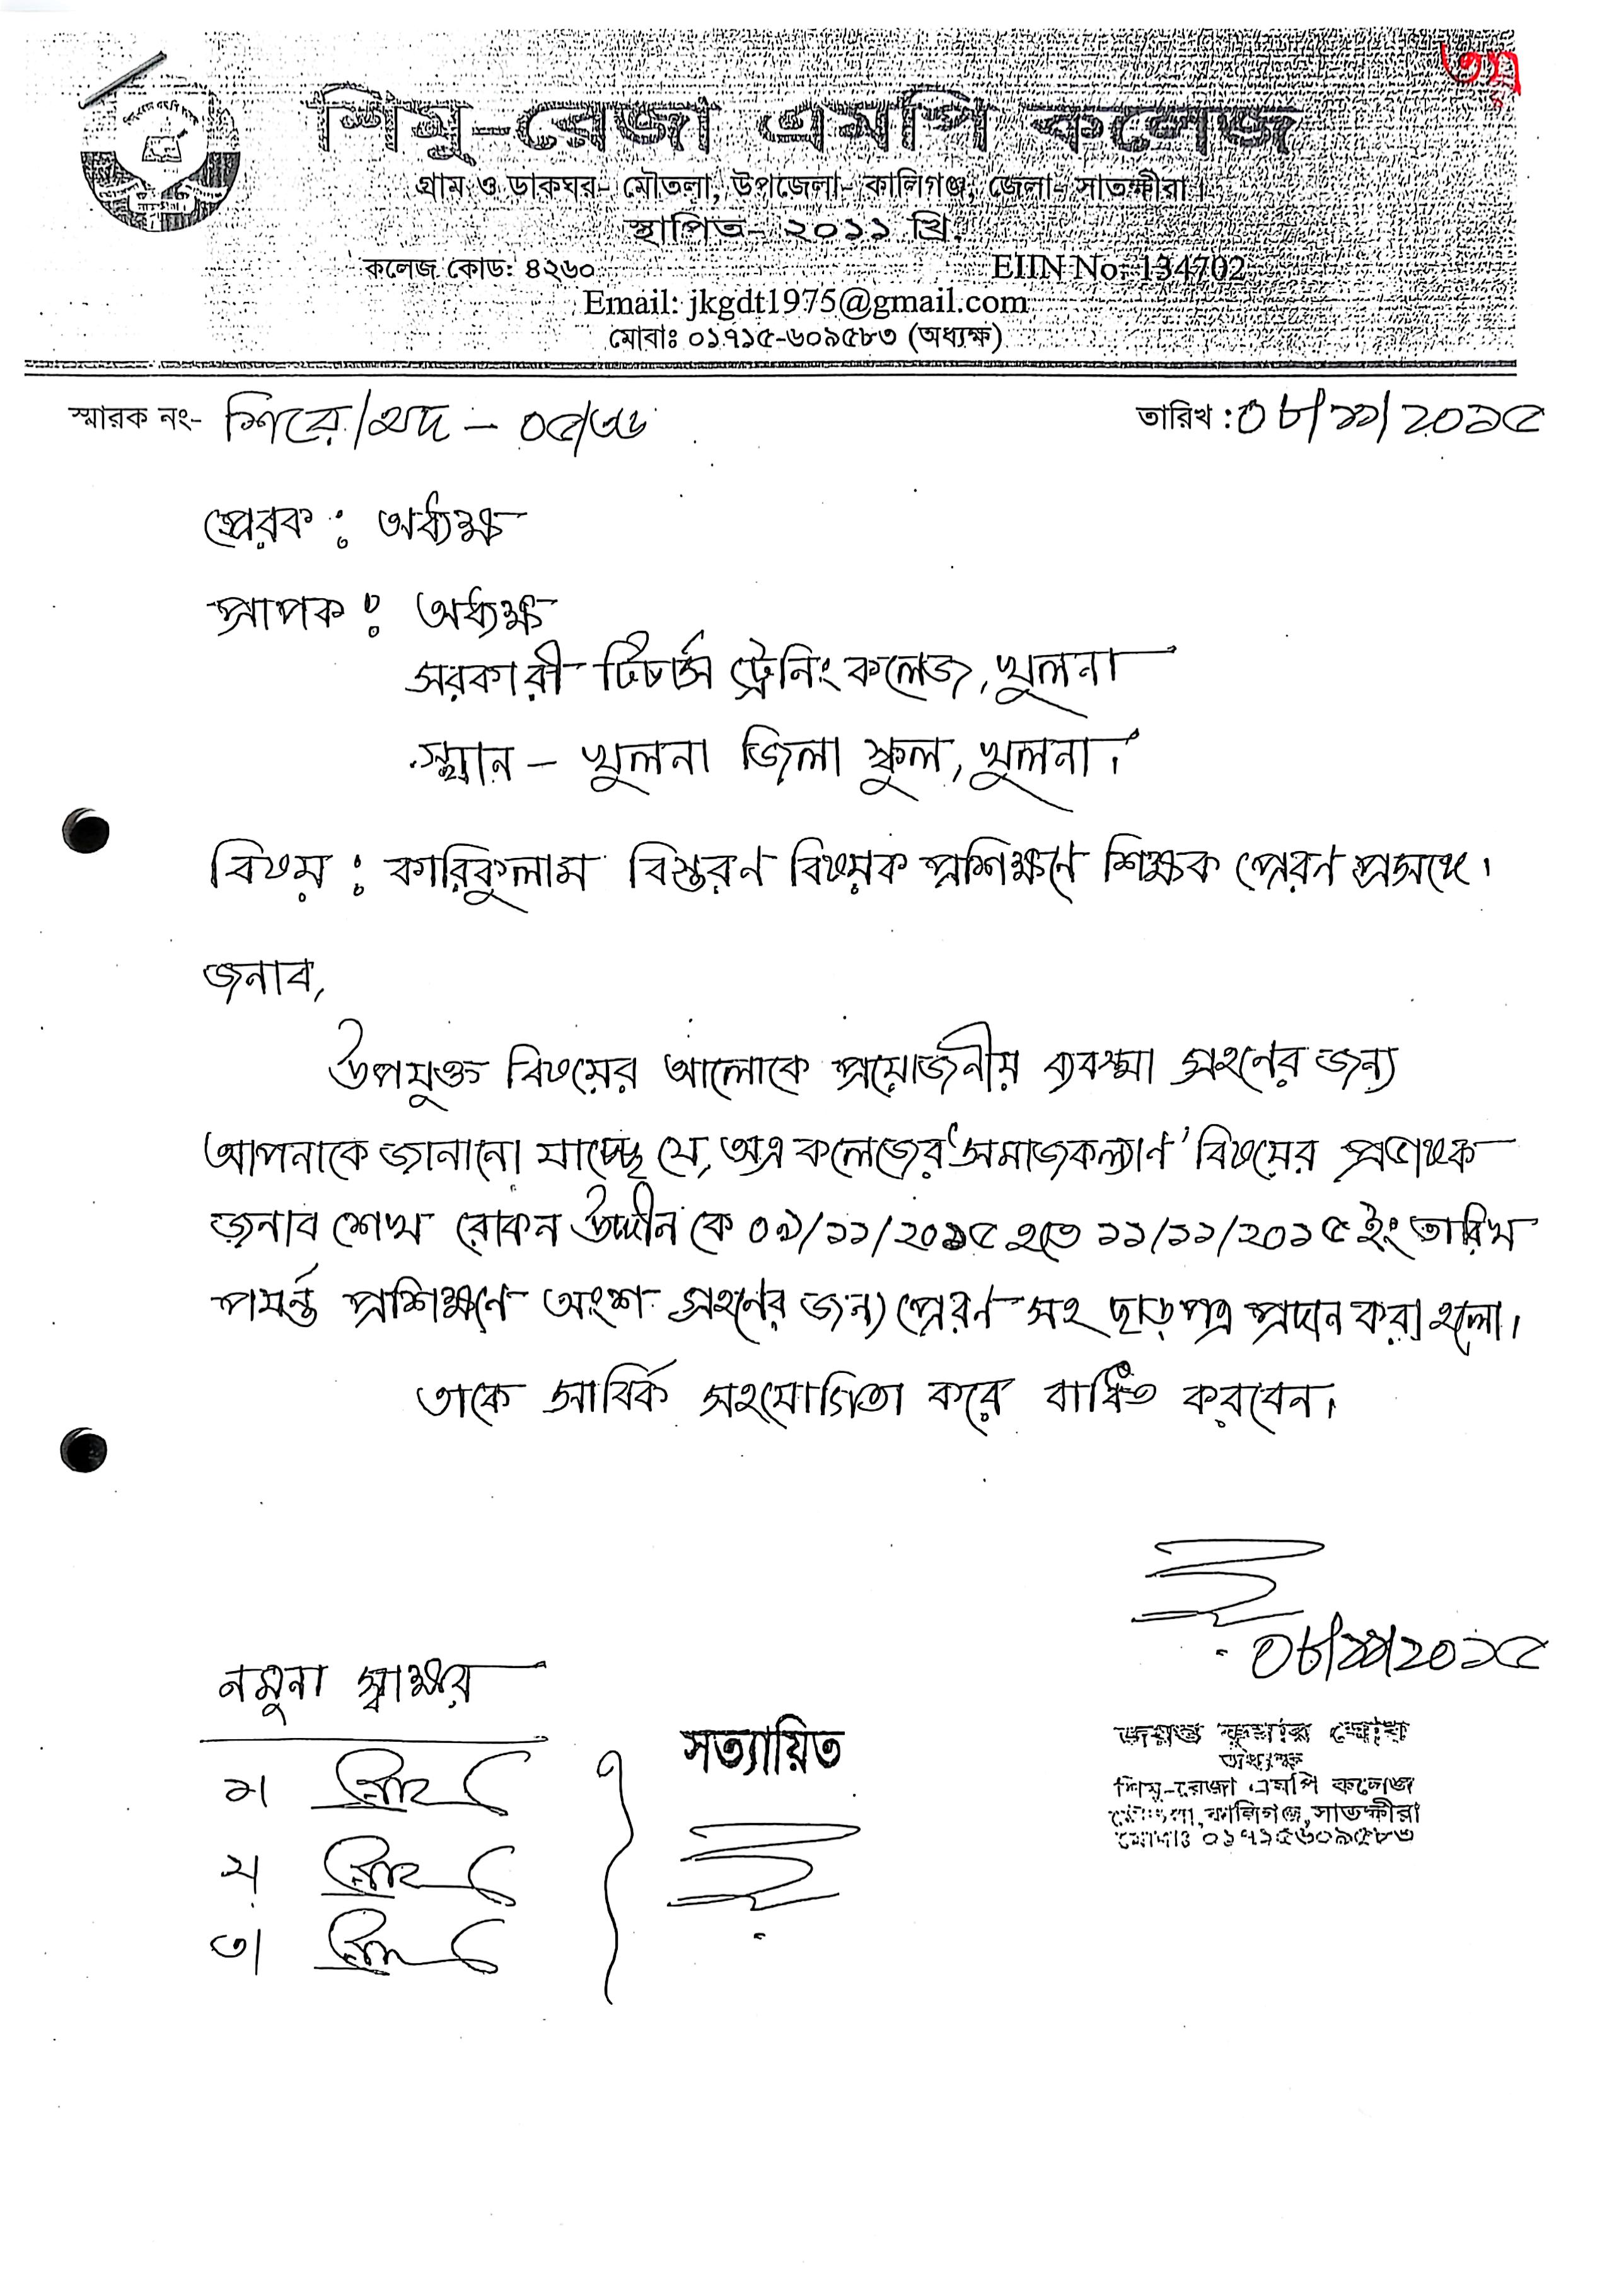 ৩য়
শিমু-রেজা এমপি কলেজ
গ্রাম ও ডাকঘর- মৌতলা, উপজেলা- কালিগঞ্জ, জেলা- সাতক্ষীরা।
স্থাপিত- ২০১১ খ্রি.
কলেজ কোড: ৪২৬০ EIIN No: 134702
Email: jkgdt1975@gmail.com
মোবাঃ ০১৭১৫-৬০৯৫৮৩ (অধ্যক্ষ)
স্মারক নং- শিরে/ তারিখ : ০৮/১১/২০১৫
প্রেরক : অধ্যক্ষ
প্রাপক : অধ্যক্ষ
সরকারী টিচার্স ট্রেনিং কলেজ, খুলনা
স্থান – খুলনা জিলা স্কুল, খুলনা।
বিষয় : কারিকুলাম বিস্তরণ বিষয়ক প্রশিক্ষণে শিক্ষক প্রেরণ প্রসঙ্গে।
জনাব,
উপযুক্ত বিষয়ের আলোকে প্রয়োজনীয় ব্যবস্থা গ্রহনের জন্য
আপনাকে জানানো যাচ্ছে যে, অত্র কলেজের 'সমাজকল্যাণ' বিষয়ের প্রভাষক
জনাব শেখ রোকন উদ্দীন কে ০৯/১১/২০১৫ হতে ১১/১১/২০১৫ ইং তারিখ
পযর্ন্ত প্রশিক্ষণে অংশ গ্রহনের জন্য প্রেরণ সহ ছাড়পত্র প্রদান করা হলো।
তাকে সার্বিক সহযোগিতা করে বাধিত করবেন।
০৮/১১/২০১৫
নমুনা স্বাক্ষর
সত্যায়িত
জয়ন্ত কুমার ঘোষ
অধ্যক্ষ
শিমু-রেজা এমপি কলেজ
মৌতলা, কালিগঞ্জ, সাতক্ষীরা
মোবাঃ ০১৭১৫৬০৯৫৮৩
১।
২।
৩।